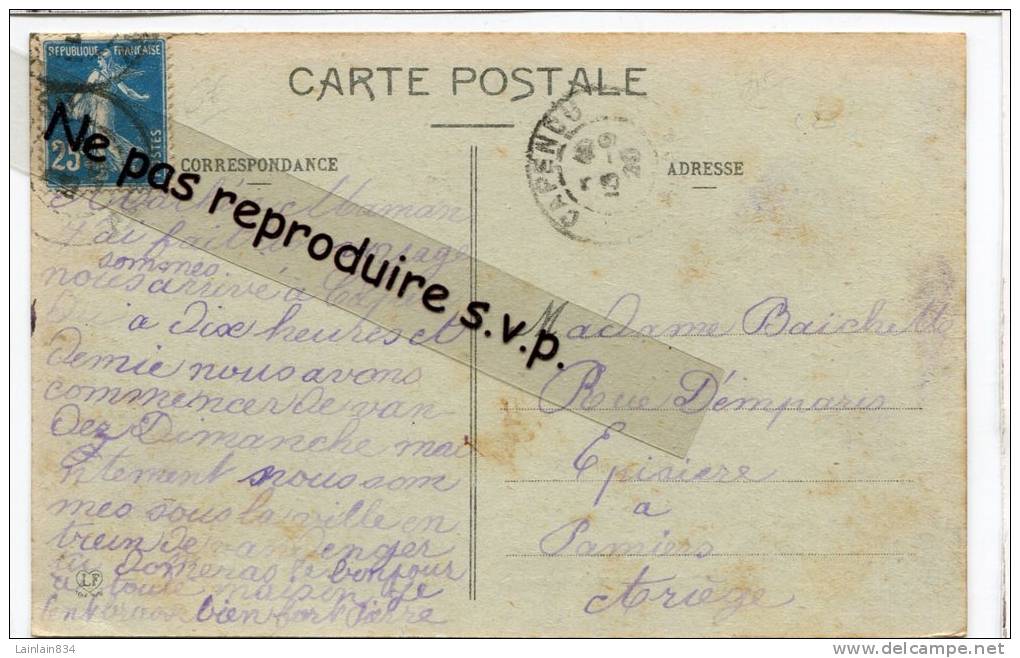 REPUBLIQUE FRANCAISE
25
POSTES
CARTE POSTALE
CAPENDU
Ne pas reproduire s.v.p.
CORRESPONDANCE
ADRESSE
Maman
J'ai fait
sommes
nous arrivé à
a dix heures et
demie nous avons
commencer de van
dez Dimanche mai
ntement nous som
mes sous la ville en
train de vandenger
tu donneras le bonjour
a toute maison. Je
bien fort Pierre
Madame Baichette
Rue Démparis
Episiere
a
Pamiers
Ariège
LF
Lainlain834
delcampe.net